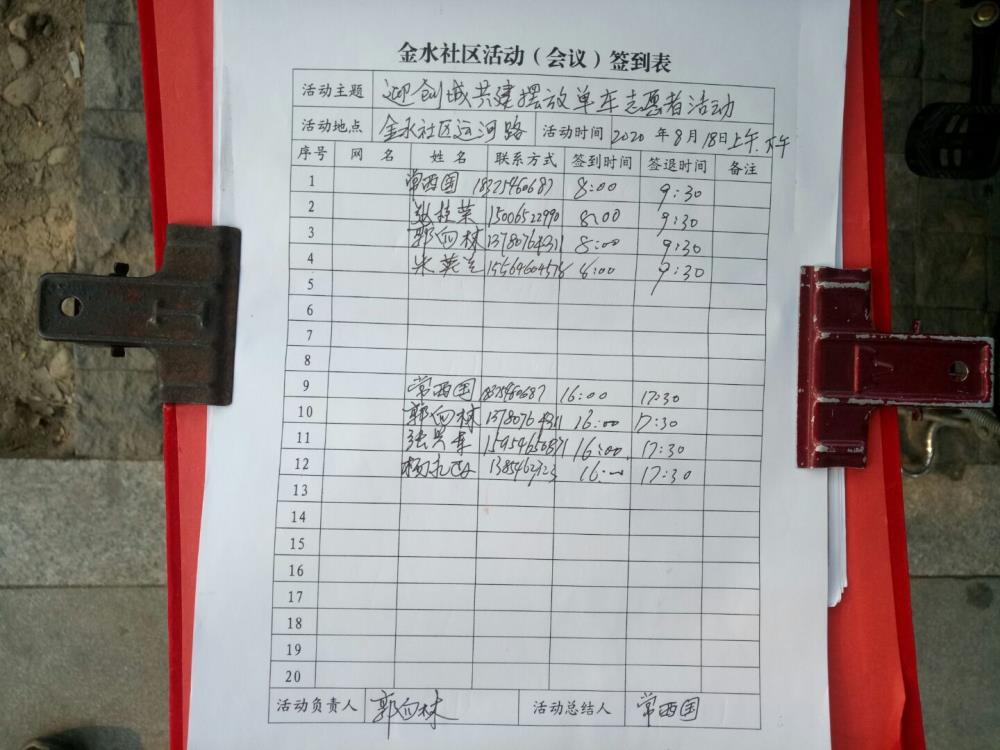 金水社区活动（会议）签到表
活动主题 迎创城共建摆放单车志愿者活动
活动地点 金水社区运河路 活动时间 2020年8月18日上午.下午
序号 网名 姓名 联系方式 签到时间 签退时间 备注
1 常西国 18325460687 8:00 9:30
2 张桂荣 15006522990 8:00 9:30
3 郭向林 13780764311 8:00 9:30
4 英兰 8:00 9:30
5
6
7
8
9 常西国 16:00 17:30
10 郭向林 13780764311 16:00 17:30
11 张 16:00 17:30
12 杨 16:00 17:30
13
14
15
16
17
18
19
20
活动负责人 郭向林 活动总结人 常西国